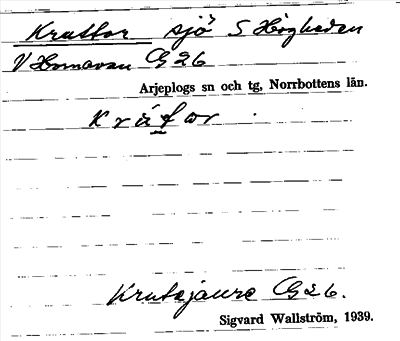 Kruttor sjö S Högheden
V Hornavan G26
Arjeplogs sn och tg, Norrbottens län.
Krutejaure G26.
Sigvard Wallström, 1939.